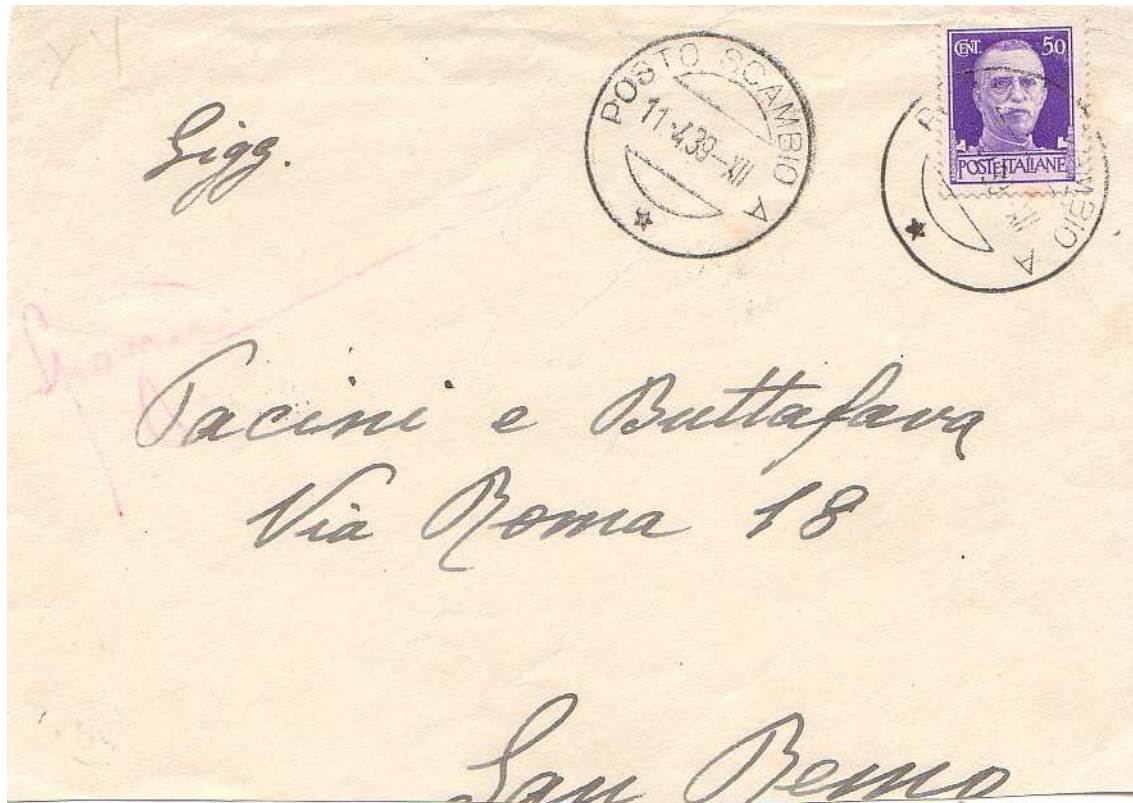 Sigg.
POSTO SCAMBIO A
11·4.39-XVII
CENT. 50
POSTE ITALIANE
Pacini e Buttafava
Via Roma 18
San Remo